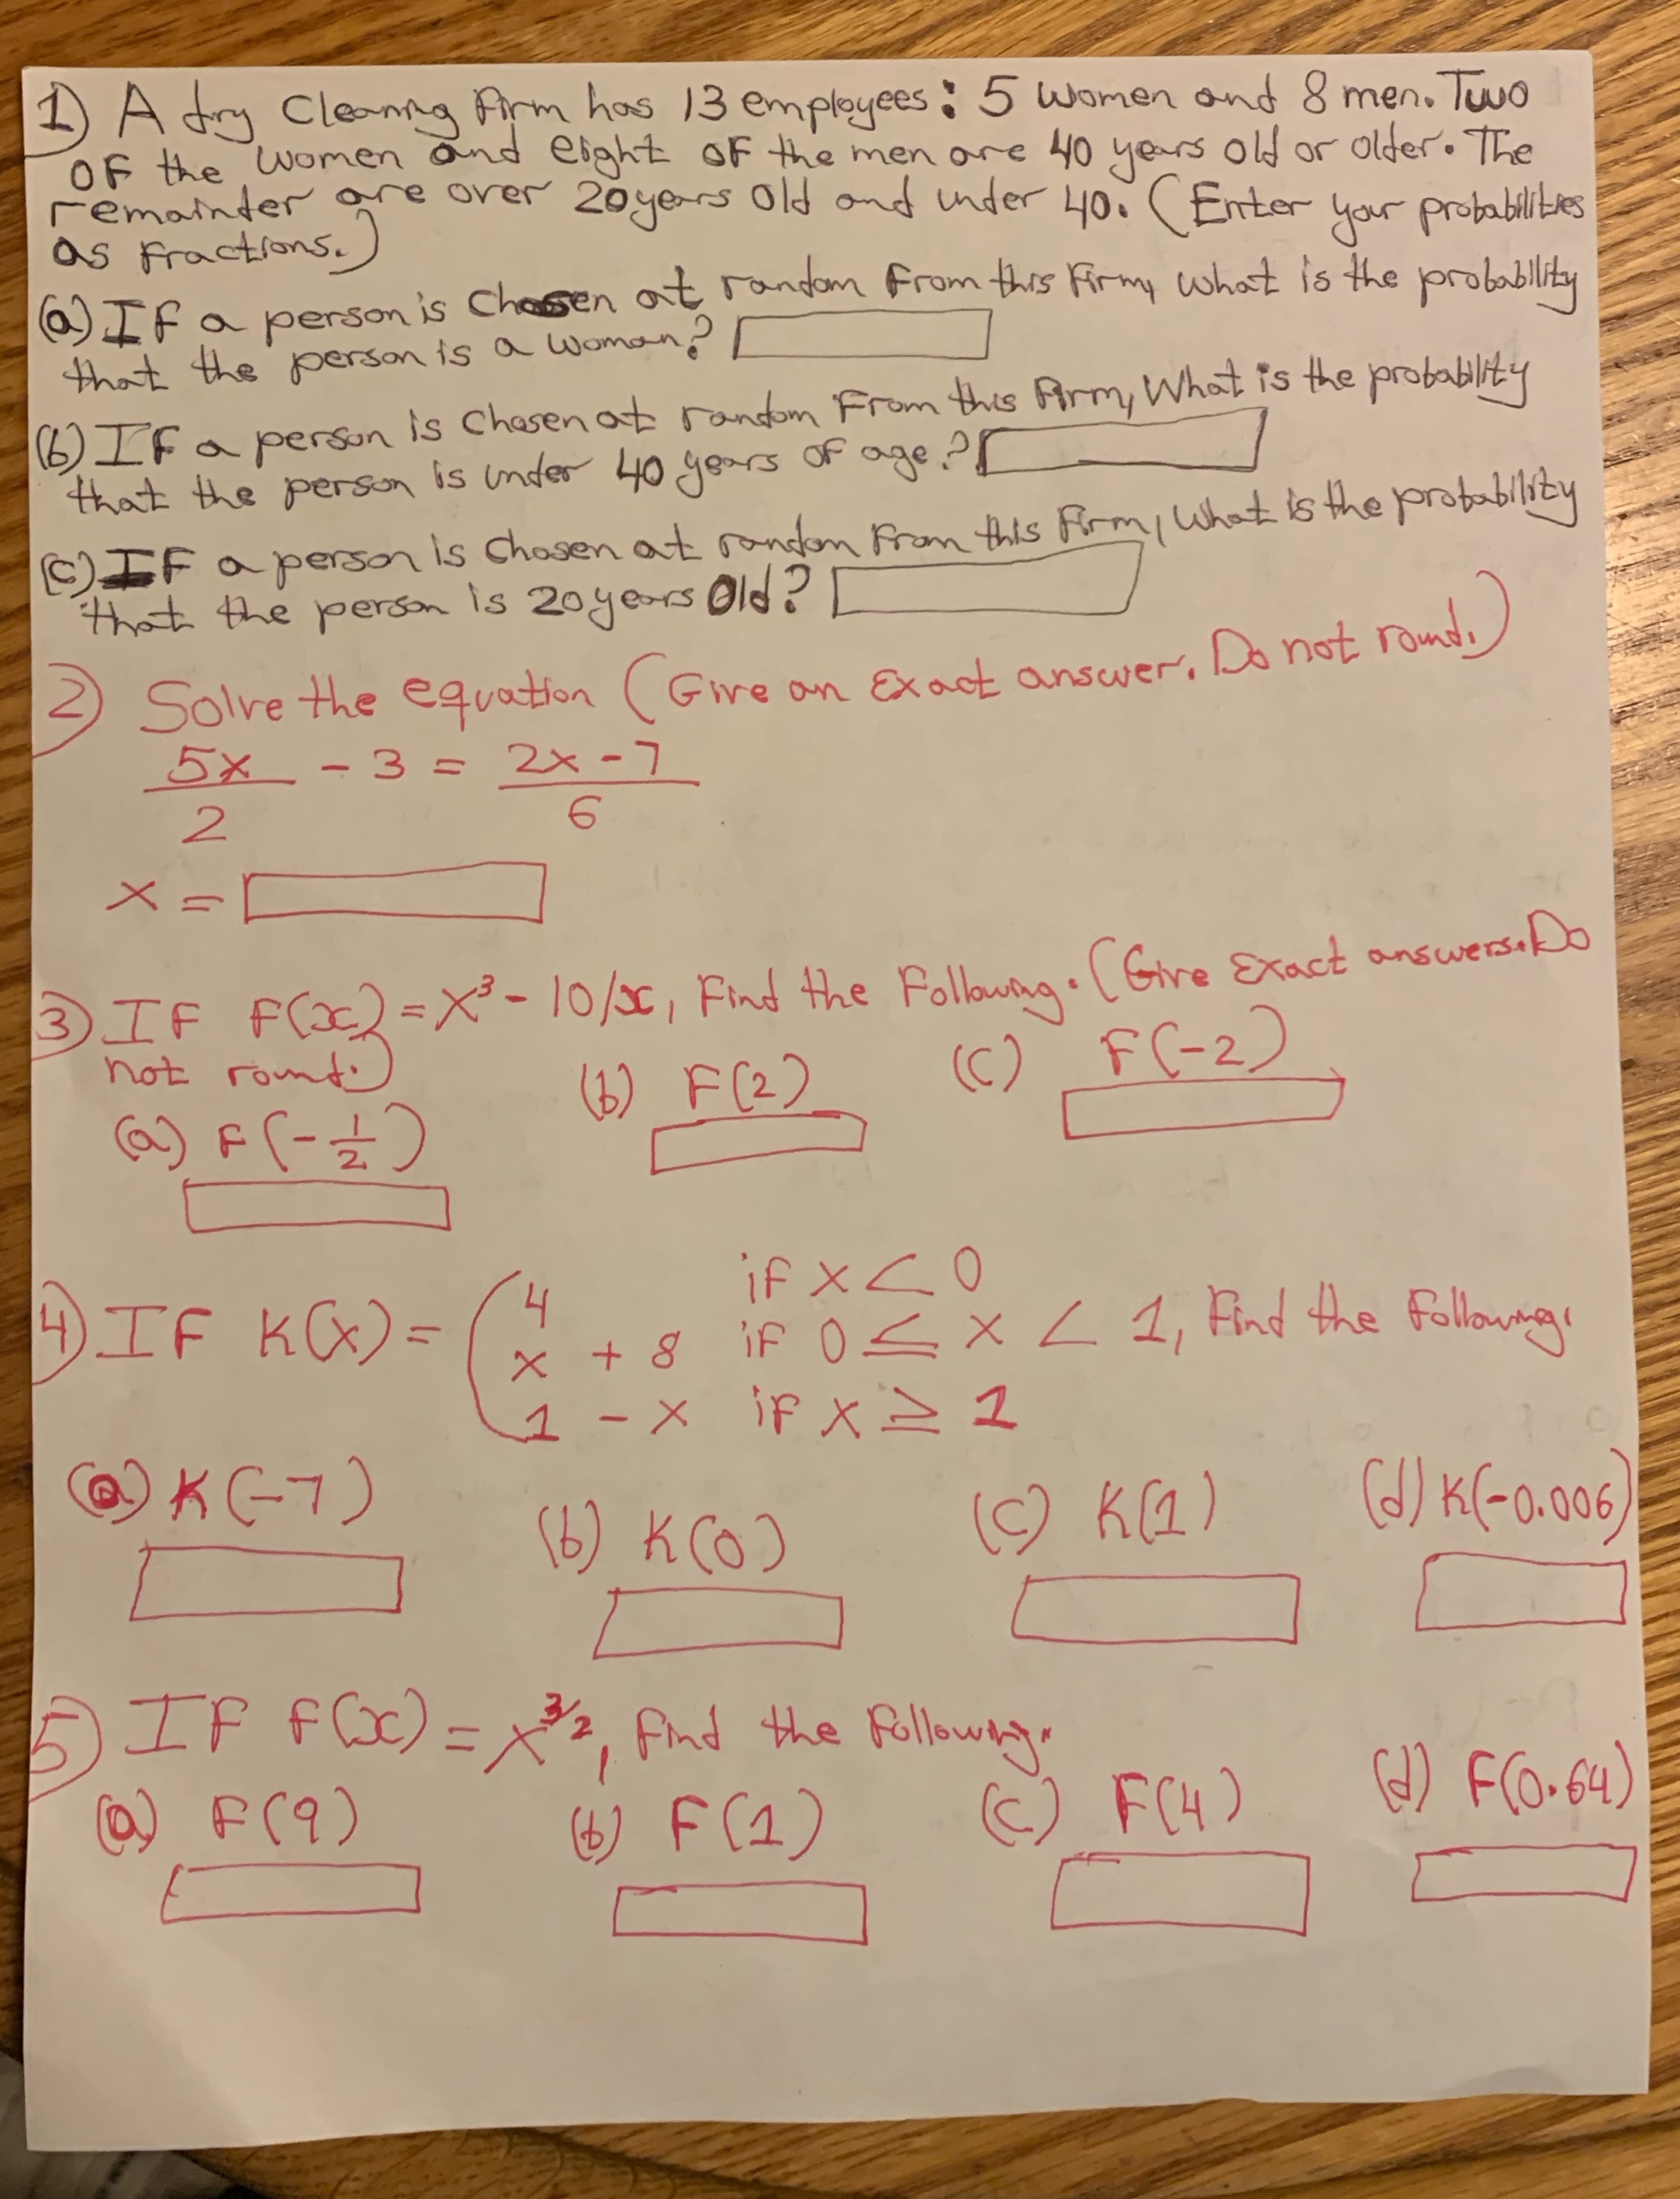 1) A dry Cleaning Firm has 13 employees: 5 women and 8 men. Two
OF the women and eight OF the men are 40 years old or older. The
remainter are over 20 years old and under 40. (Enter your probabilities
as Fractions.)
(a) IF a person is chosen at random From this Firm, what is the probability
that the person is a woman?
(b) IF a person is Chosen at random From this Firm, What is the probability
that the person is under 40 years OF age?
(c) IF a person is Chosen at random From this Firm, What is the probability
that the person is 20 years Old?
2) Solve the equation (Give an Exact answer. Do not round.)
5x/2 - 3 = 2x - 7/6
x =
3) IF F(x) = x³ - 10/x, Find the Following. (Give Exact answers. Do
not round.)
(a) F(-1/2) (b) F(2) (C) F(-2)
4) IF K(x) = ( 4 if x < 0
x + 8 if 0 ≤ x < 1, Find the Following.
1 - x if x ≥ 1
(a) K(-7) (b) K(0) (C) K(1) (d) K(-0.006)
5) IF F(x) = x^3/2, Find the Following.
(a) F(9) (b) F(1) (C) F(4) (d) F(0.64)